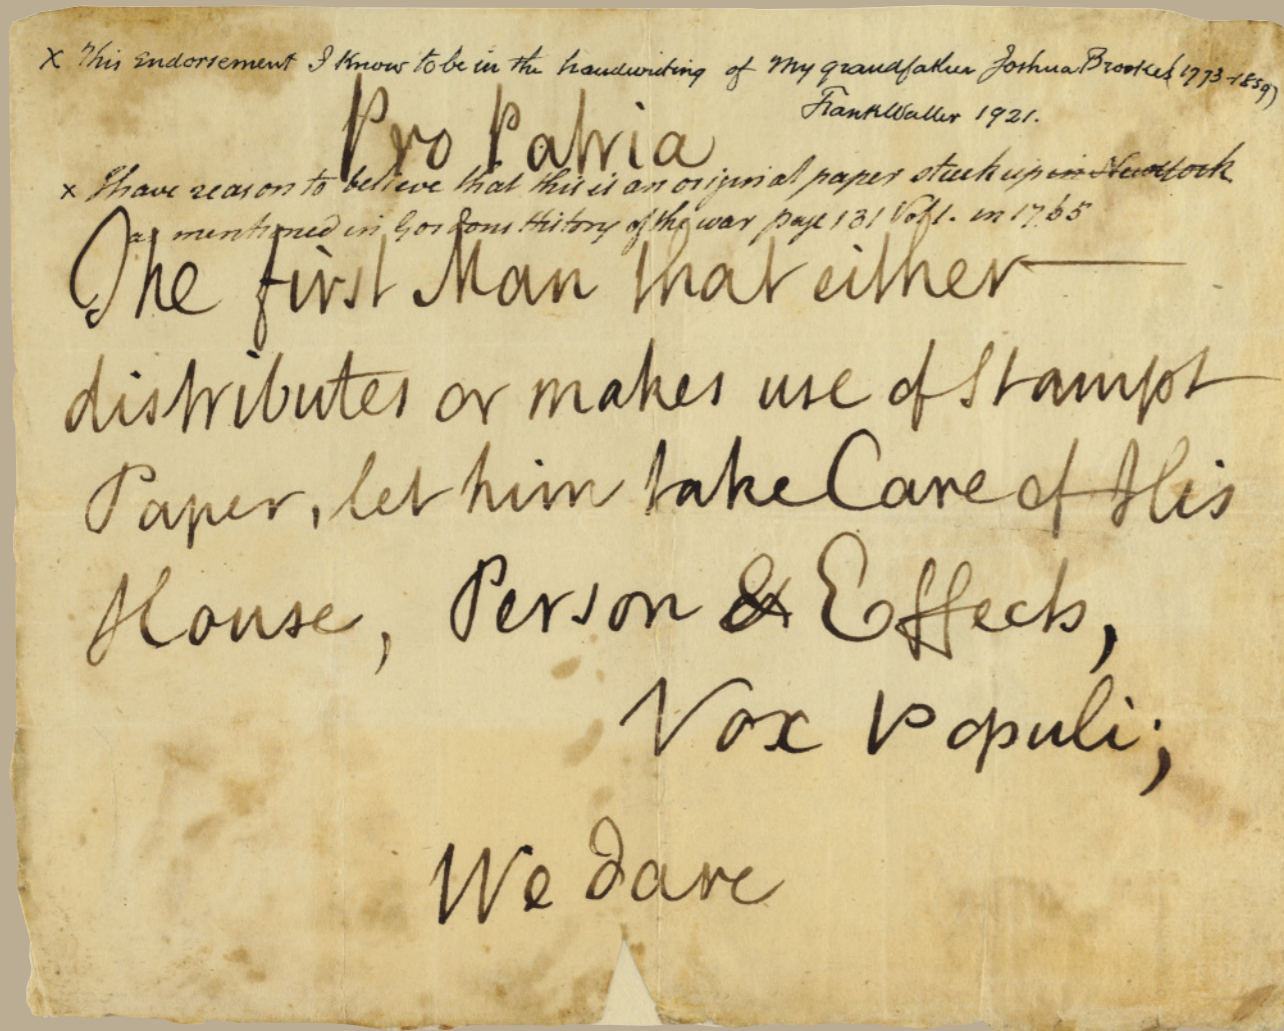 X This Endorsement I Know to be in the handwriting of My grandfather Joshua Brookes (1773-1859)
Frank Waller 1921.
Pro Patria
x I have reason to believe that this is an original paper stuck up in New York
as mentioned in Gordons History of the war page 131 Vol 1. in 1765
The first Man that either
distributes or makes use of Stampt
Paper, let him take Care of His
House, Person & Effects,
Vox Populi;
We Dare